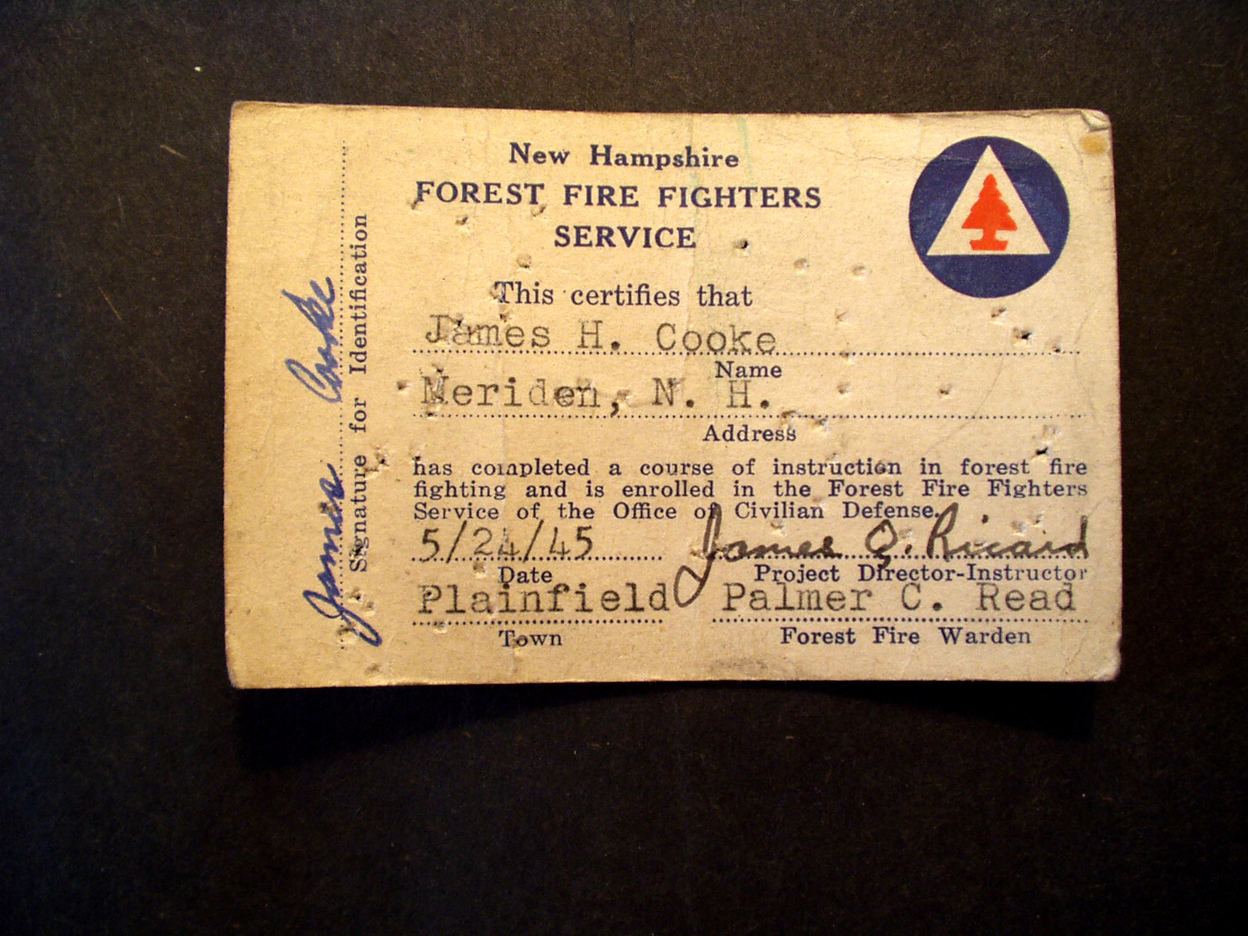 New Hampshire
FOREST FIRE FIGHTERS
SERVICE
This certifies that
James H. Cooke
Name
Meriden, N. H.
Address
has completed a course of instruction in forest fire
fighting and is enrolled in the Forest Fire Fighters
Service of the Office of Civilian Defense.
5/24/45 James Q. Ricard
Date Project Director-Instructor
Plainfield Palmer C. Read
Town Forest Fire Warden
James Cooke
Signature for Identification